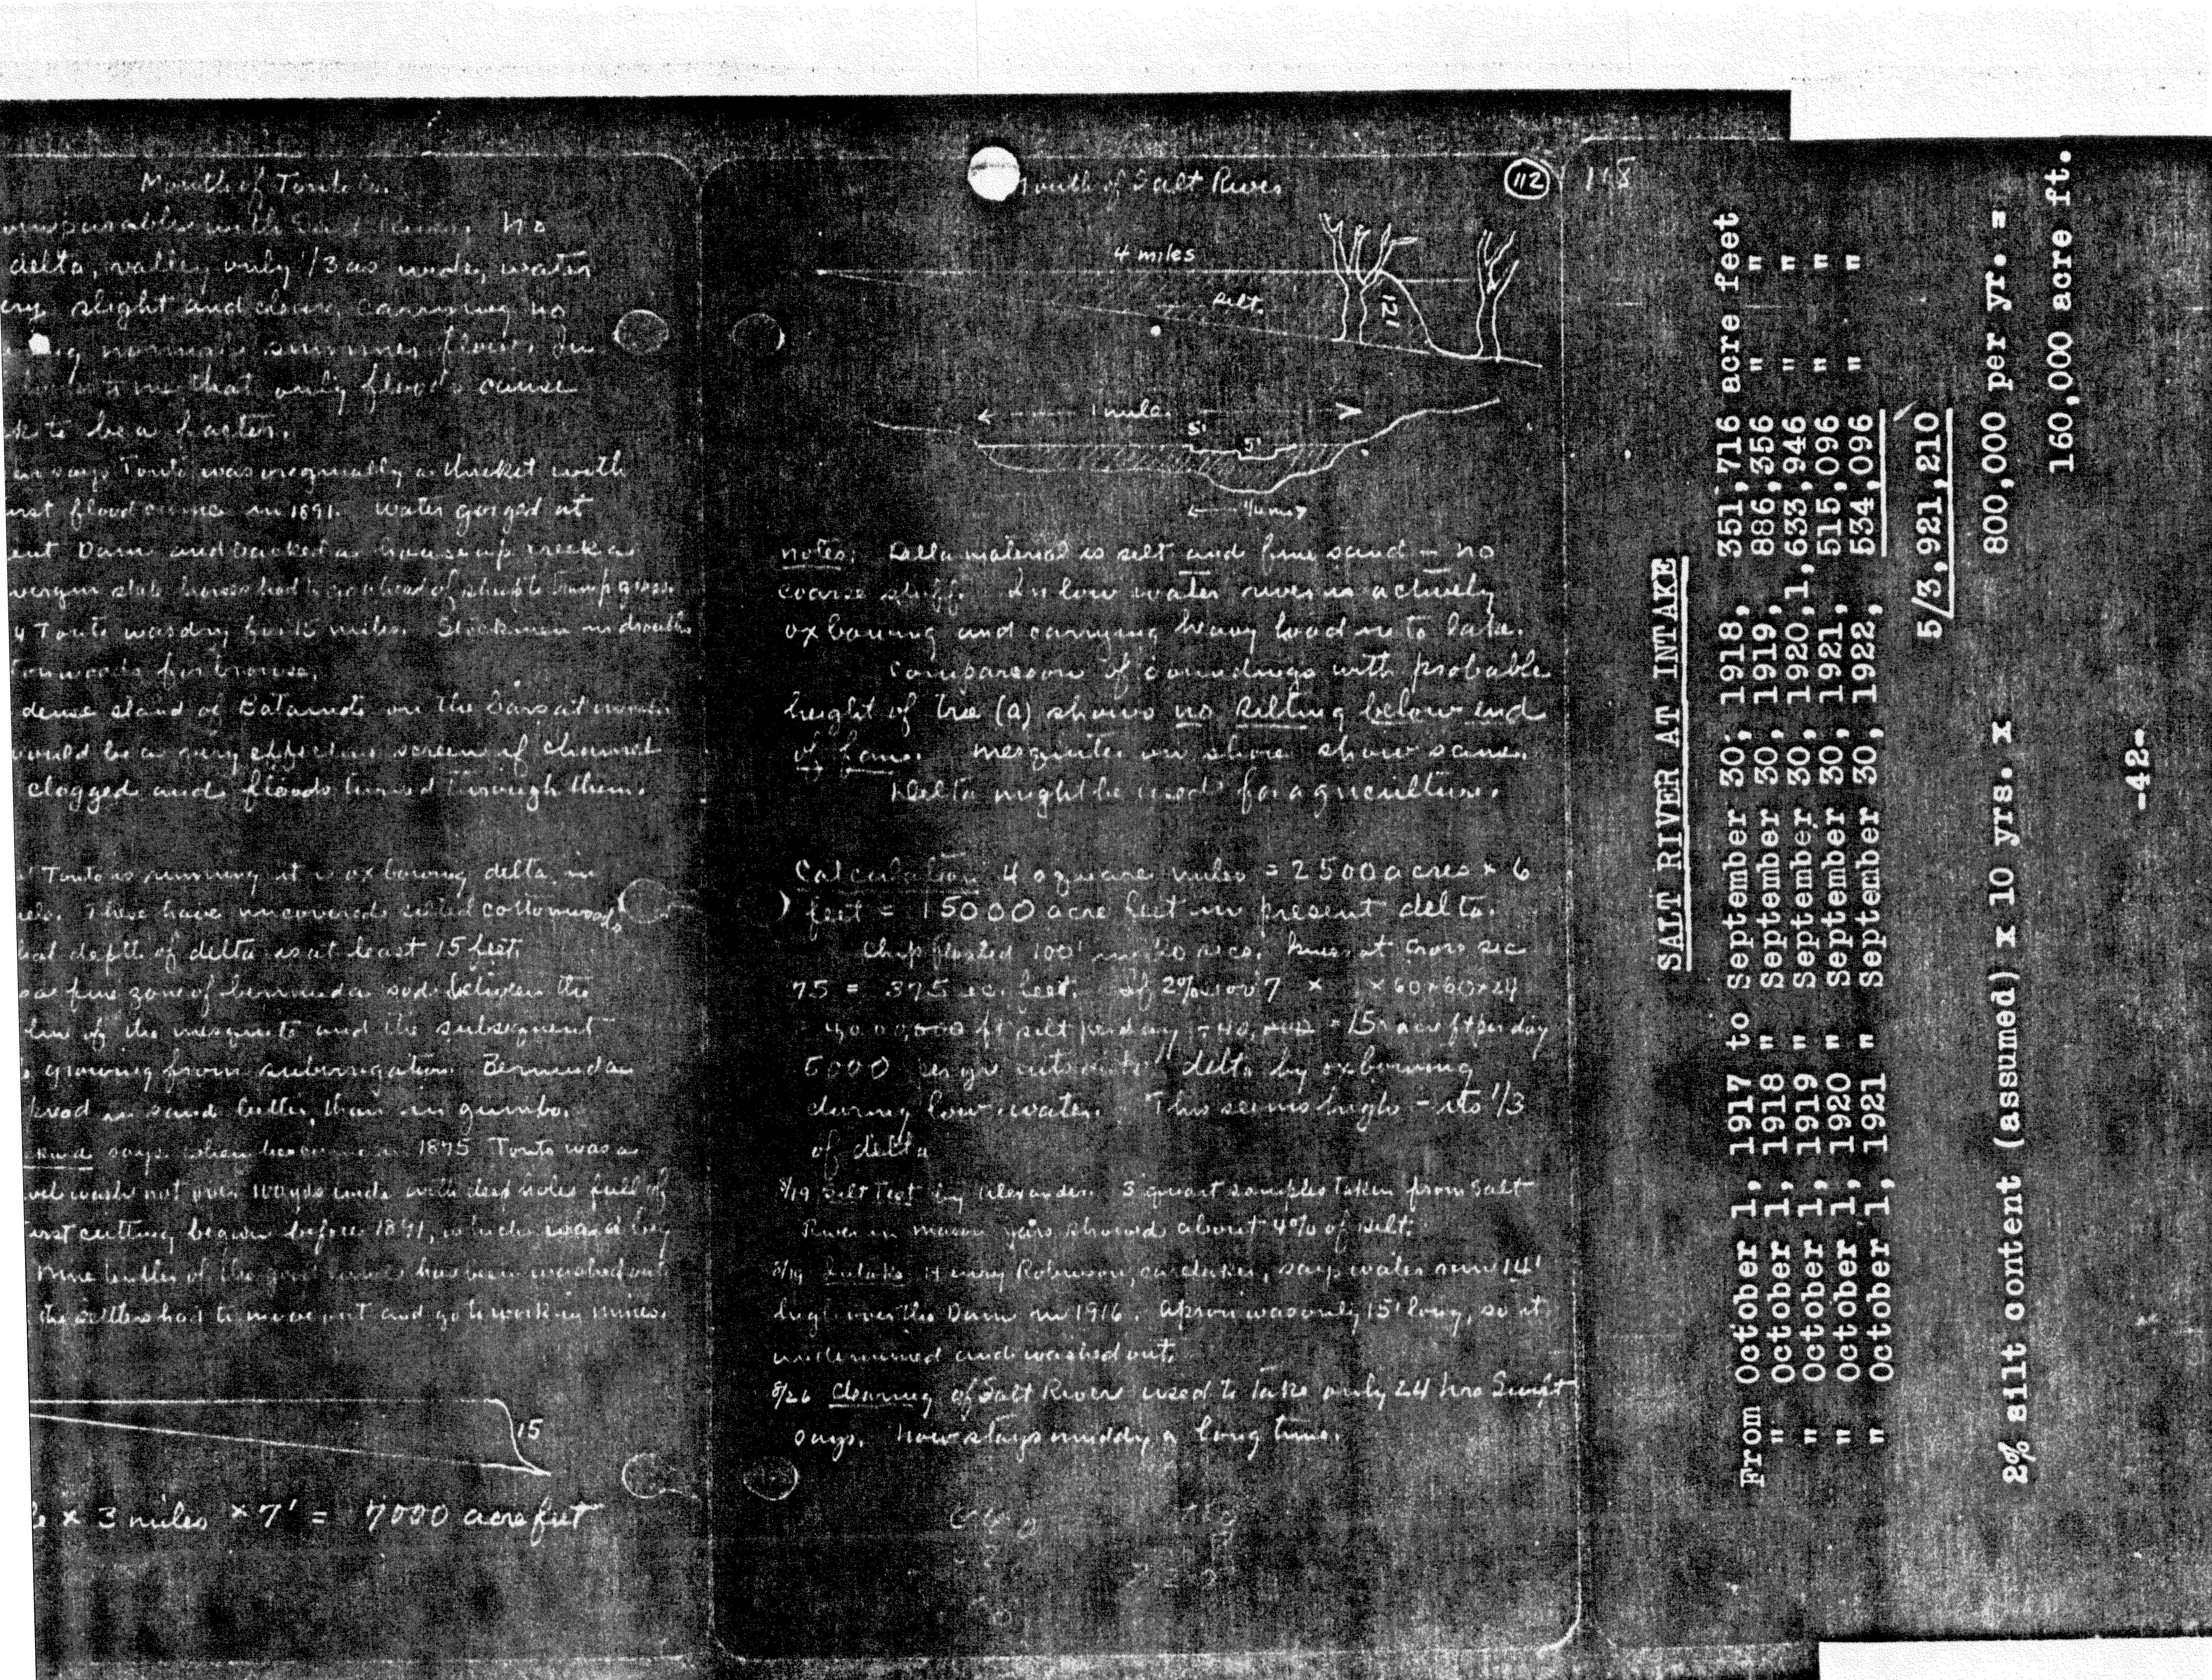 Mouth of Tonto Cr.
comparable with Salt River. No
delta, valley only 1/3 as wide, water
very slight and clear, carrying no
normal summer flow.
me that only floods cause
to be a factor.
says Tonto was originally a thicket with
first flood came in 1891. Water gorged at
Dam and backed a house up creek a
horses had to go ahead of to tramp grass.
Tonto was dry for 15 miles. Stockmen in drouths
for browse.
dense stand of Batamote on the bars at mouth
would be a very effective screen if channel
clogged and floods turned through them.
Tonto is running it is oxbowing delta in
These have uncovered silted cottonwoods
depth of delta is at least 15 feet.
fine zone of bermuda sod between the
line of the mesquite and the subsequent
growing from subirrigation. Bermuda
in sand better than in gumbo.
says when he came in 1875 Tonto was a
wash not over 100 yds wide with deep holes full of
first cutting began before 1891, which was a big
Nine tenths of the good has been washed out
the settlers had to move out and go to work in mines.
15
x 3 miles x 7' = 7000 acre feet
outh of Salt River
112
4 miles
silt
12'
1 mile
5'
5'
1/4 mi
notes: Delta material is silt and fine sand - no
coarse stuff. In low water river is actively
oxbowing and carrying heavy load into lake.
Comparison of soundings with probable
height of tree (a) shows no silting below end
of fan. Mesquites on shore show same.
Delta might be used for agriculture.
Calculation 4 square miles = 2500 acres x 6
feet = 15000 acre feet in present delta.
Chip floated 100' in 20 secs. River at cross sec
75 = 375 sec. feet. If 2% x 60 x 60 x 24
ft silt per day = 15 acre ft per day
5000 per yr delta by oxbowing
during low water. This seems high - its 1/3
of delta
8/19 Silt Test by Alexander. 3 quart samples taken from Salt
River in mason jars showed about 4% of silt.
8/19 Intake Henry Robinson, caretaker, says water run 14'
high over the Dam in 1916. Apron was only 15' long, so it
undermined and washed out.
8/26 Clearing of Salt River used to take only 24 hrs Swift
says. Now stays muddy a long time.
118
SALT RIVER AT INTAKE
From October 1, 1917 to September 30, 1918, 351,716 acre feet
" October 1, 1918 " September 30, 1919, 886,356 " "
" October 1, 1919 " September 30, 1920, 1,633,946 " "
" October 1, 1920 " September 30, 1921, 515,096 " "
" October 1, 1921 " September 30, 1922, 534,096 " "
5/3,921,210
2% silt content (assumed) x 10 yrs. x 800,000 per yr. =
160,000 acre ft.
-42-